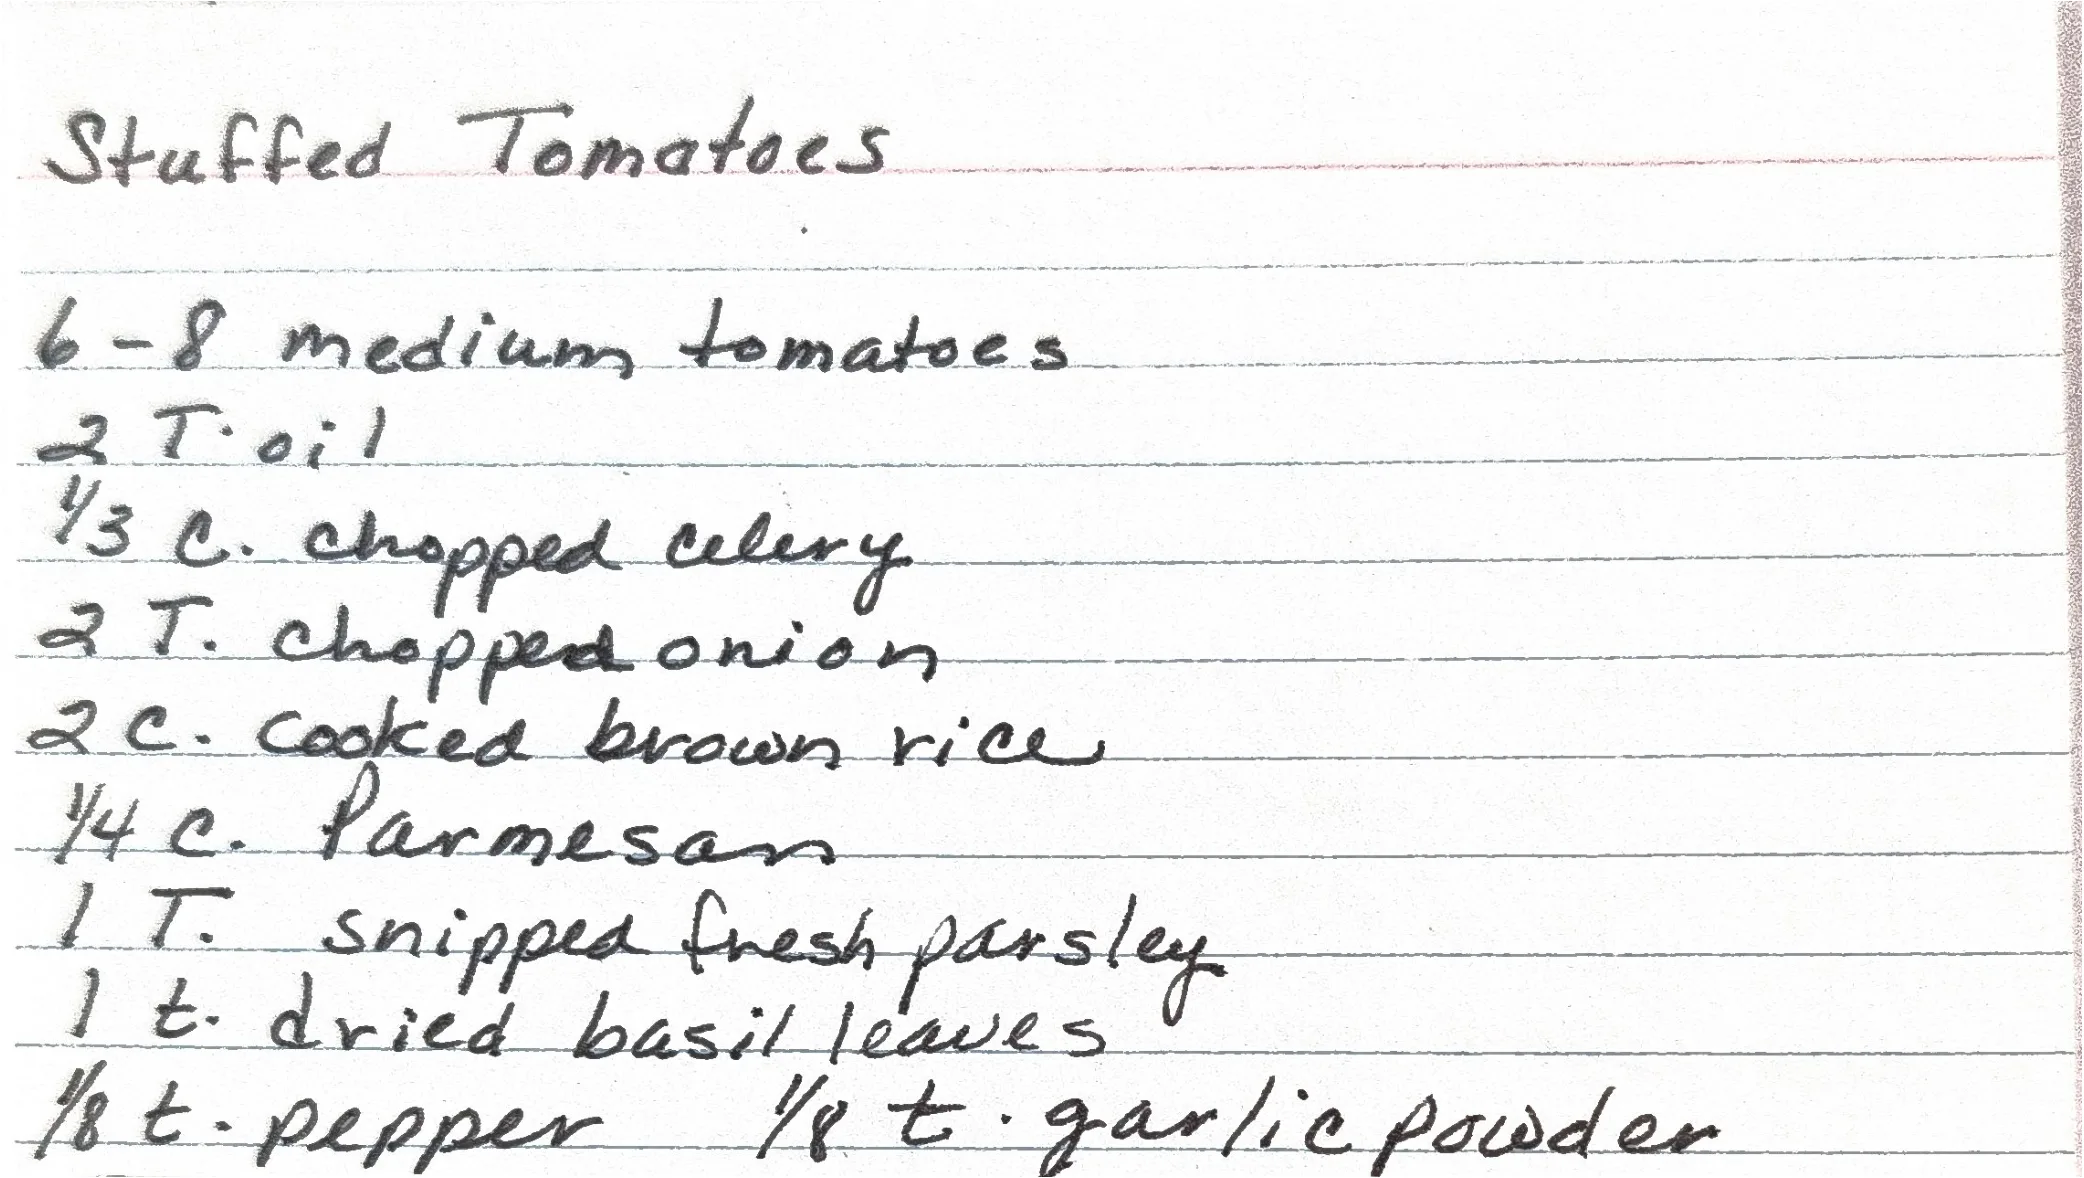 Stuffed Tomatoes
6-8 medium tomatoes
2 T. oil
1/3 C. chopped celery
2 T. chopped onion
2 C. cooked brown rice
1/4 C. Parmesan
1 T. snipped fresh parsley
1 t. dried basil leaves
1/8 t. pepper 1/8 t. garlic powder